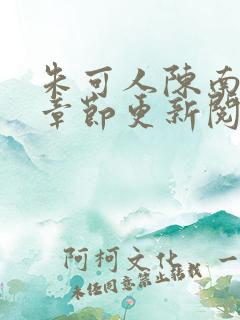 朱可人陈南
章节更新阅
阿柯文化 一
未经同意禁止转载